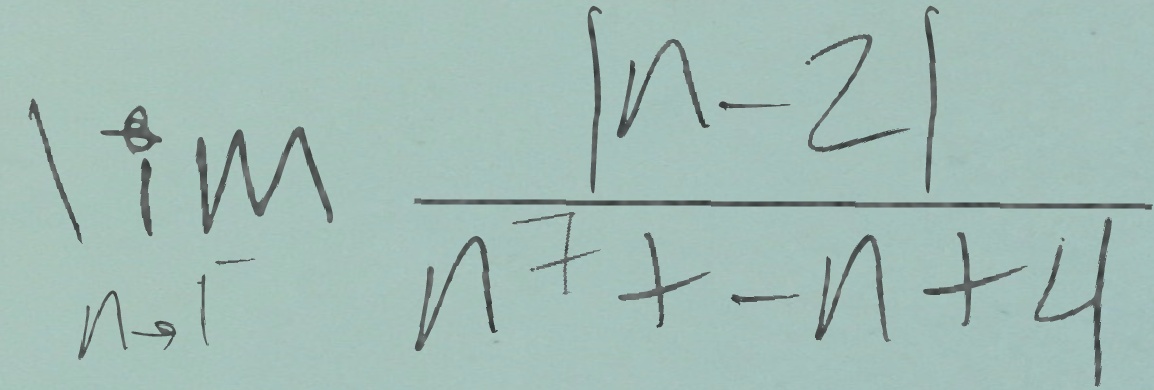 \lim_{n \to 1^-} \frac{|n-2|}{n^7+-n+4}